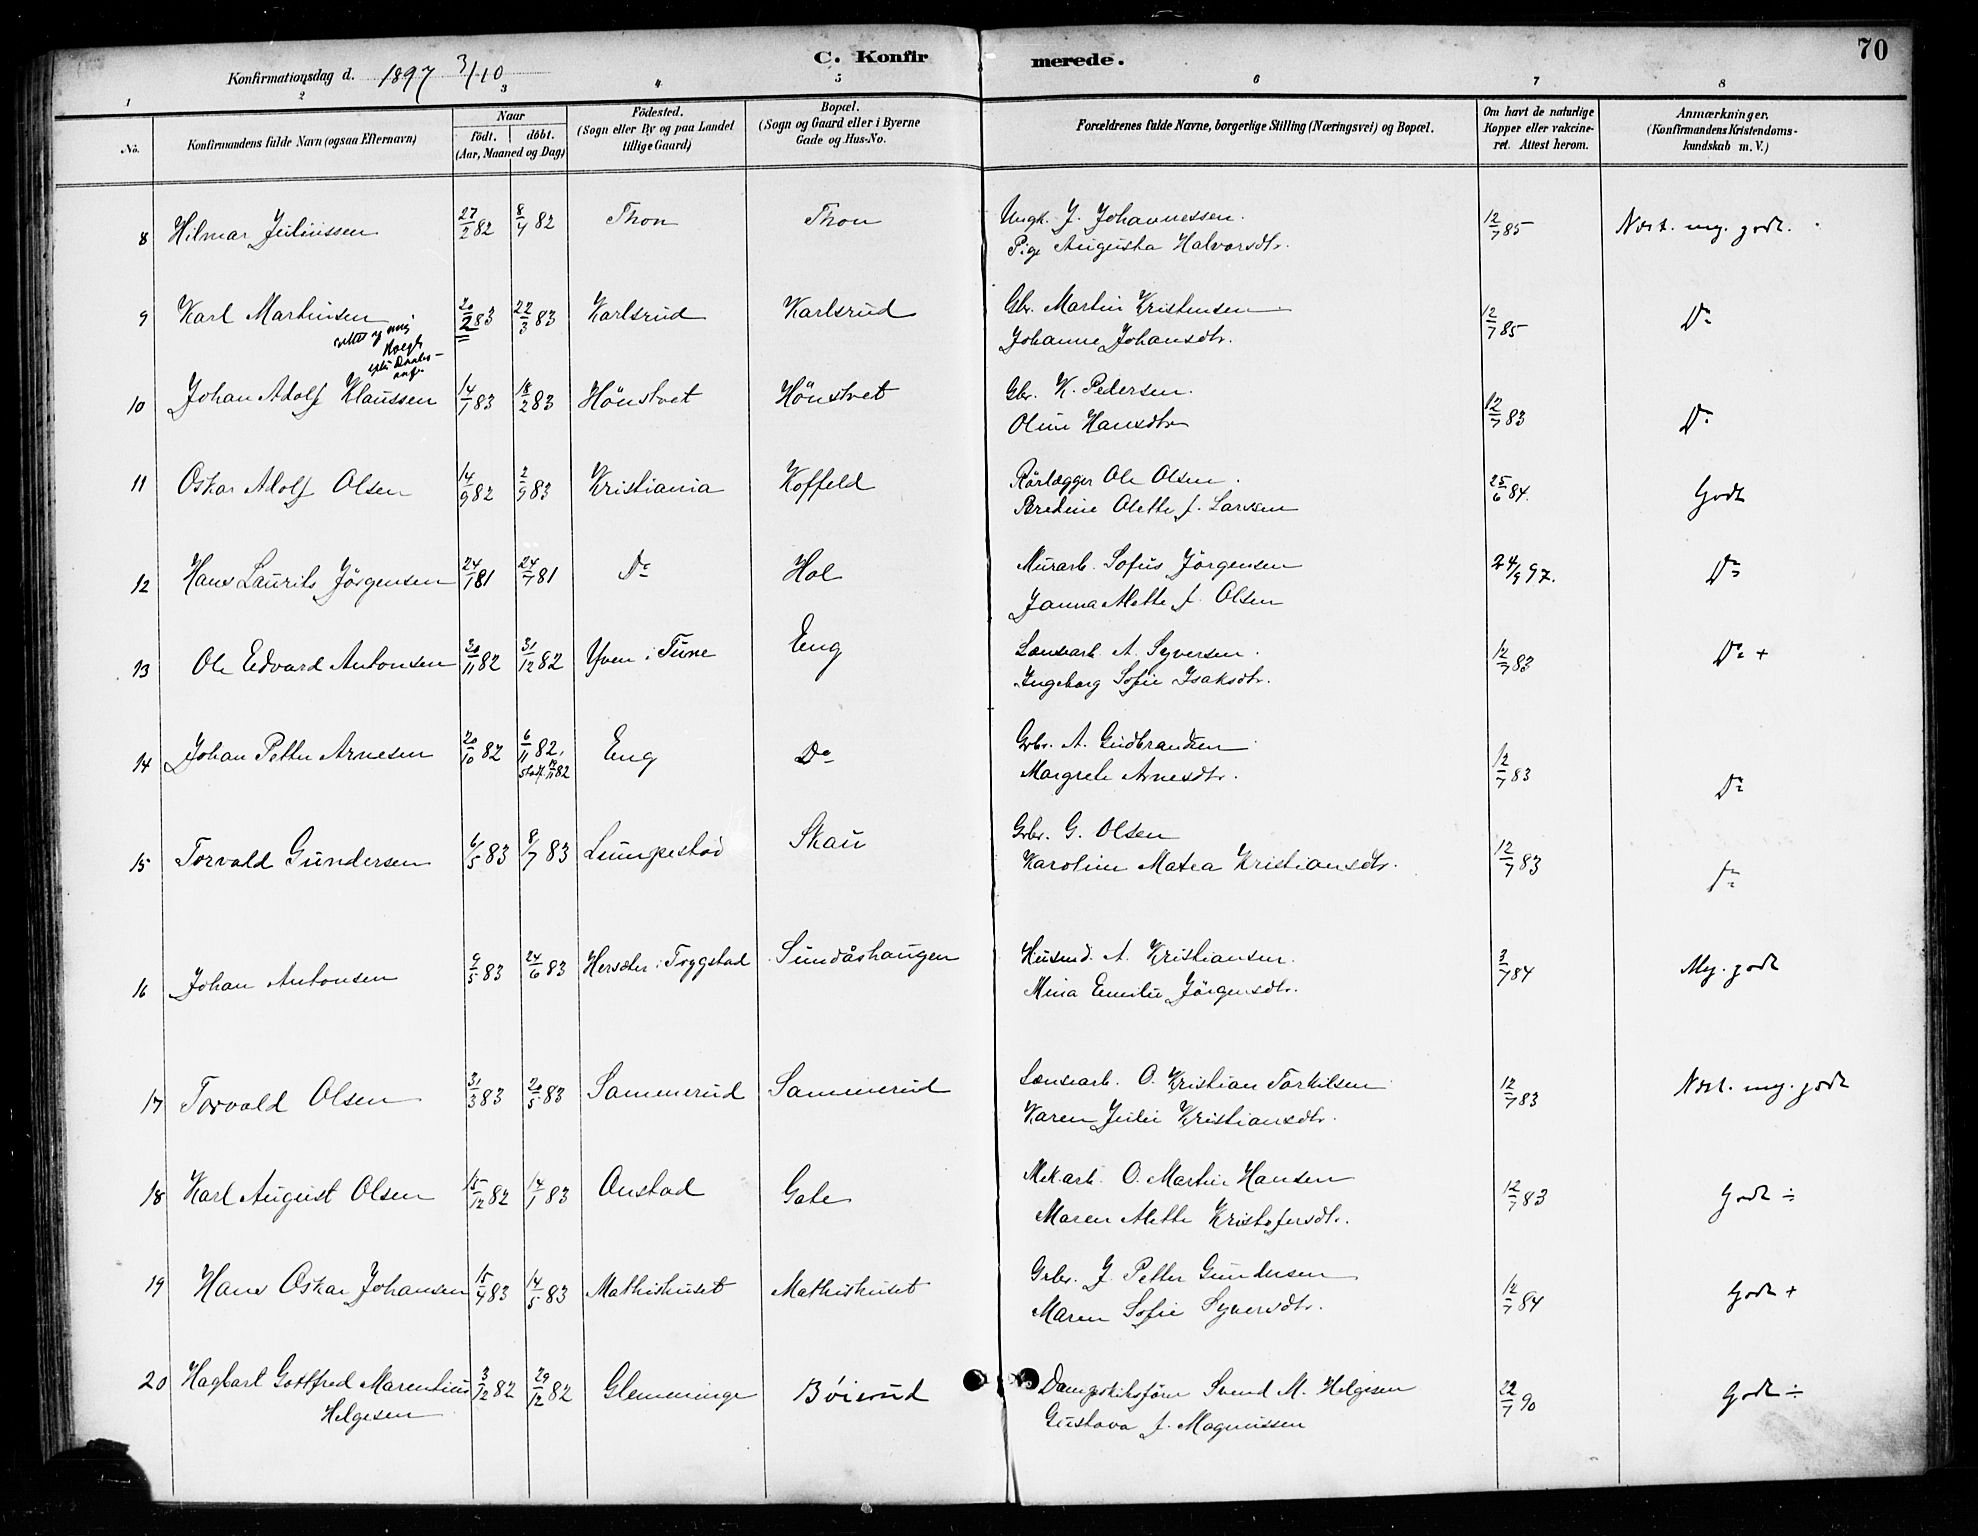 70
C. Konfirmerede.
Konfirmationsdag d. 1897 3/10
1 2 3 4 5 6 7 8
No. Konfirmandens fulde Navn (ogsaa Efternavn) Naar födt. döbt. (Aar, Maaned og Dag) Födested. (Sogn eller By og paa Landet tillige Gaard) Bopæl. (Sogn og Gaard eller i Byerne Gade og Hus-No. Forældrenes fulde Navne, borgerlige Stilling (Næringsvei) og Bopæl. Om havt de naturlige Kopper eller vakcineret. Attest herom. Anmærkninger. (Konfirmandens Kristendomskundskab m. V.)
8 Hilmar Juliussen 27/2 82 8/4 82 Thon Thon Ungk. J. Johannessen. 12/7 85 Næst. mg. godt.
Pige Augusta Halvorsdtr.
9 Karl Martinsen 20/2 83 22/3 83 Karlsrud Karlsrud Gbr. Martin Kristensen 12/7 85 Do
Johanne Johansdtr.
10 Johan Adolf Klaussen 14/1 83 18/2 83 Hönstvet Hönstvet Gbr. K. Pedersen. 12/7 83 Do
Oline Hansdtr
11 Oskar Adolf Olsen 14/9 82 2/9 83 Kristiania Koffeld Rörlægger Ole Olsen. 25/6 84. Godt
Beredine Olette f. Larsen
12 Hans Laurits Jörgensen 24/1 81 24/7 81 Do Hol Murarb. Sofus Jörgensen 24/9 97. Do
Janna Mette f. Olsen
13 Ole Edvard Antonsen 30/11 82 31/12 82 Yven i Tune Eng Lænsearb. A. Syversen. 12/7 83 Do +
Ingeborg Sofie Isaksdtr.
14 Johan Petter Arnesen 20/10 82 6/11 82, Eng Do Grbr. A. Gudbrandsen 12/7 83 Do
Margrete Arnesdtr.
15 Torvald Gundersen 6/5 83 8/7 83 Lumpestad Skau Grbr. G. Olsen 12/7 83 Do
Karoline Matea Kristiansdtr.
16 Johan Antonsen 9/5 83 24/6 83 Hersæter i Trygstad Sundåshaugen Husmd. A. Kristiansen. 3/7 84 Mg. godt
Mina Emilie Jörgensdtr.
17 Torvald Olsen 31/3 83 20/5 83 Sammerud Sammerud Lænsearb. O. Kristian Torkilsen 12/7 83 Næst. mg. godt
Karen Julie Kristiansdtr.
18 Karl August Olsen 15/12 82 14/1 83 Onstad Gate Mek.arb. O. Martin Hansen 12/7 83 Godt ÷
Maren Mette Kristofersdtr.
19 Hans Oskar Johansen 15/4 83 14/5 83 Mathishuset Mathishuset Grbr. J. Petter Gundersen 12/7 84 Godt +
Maren Sofie Syversdtr.
20 Hagbart Gottfred Marentius 3/12 82 29/12 82 Glemminge Böierud Dampskibsförer Svend M. Helgesen 22/7 90 Godt ÷
Helgesen Gustava f. Magnussen